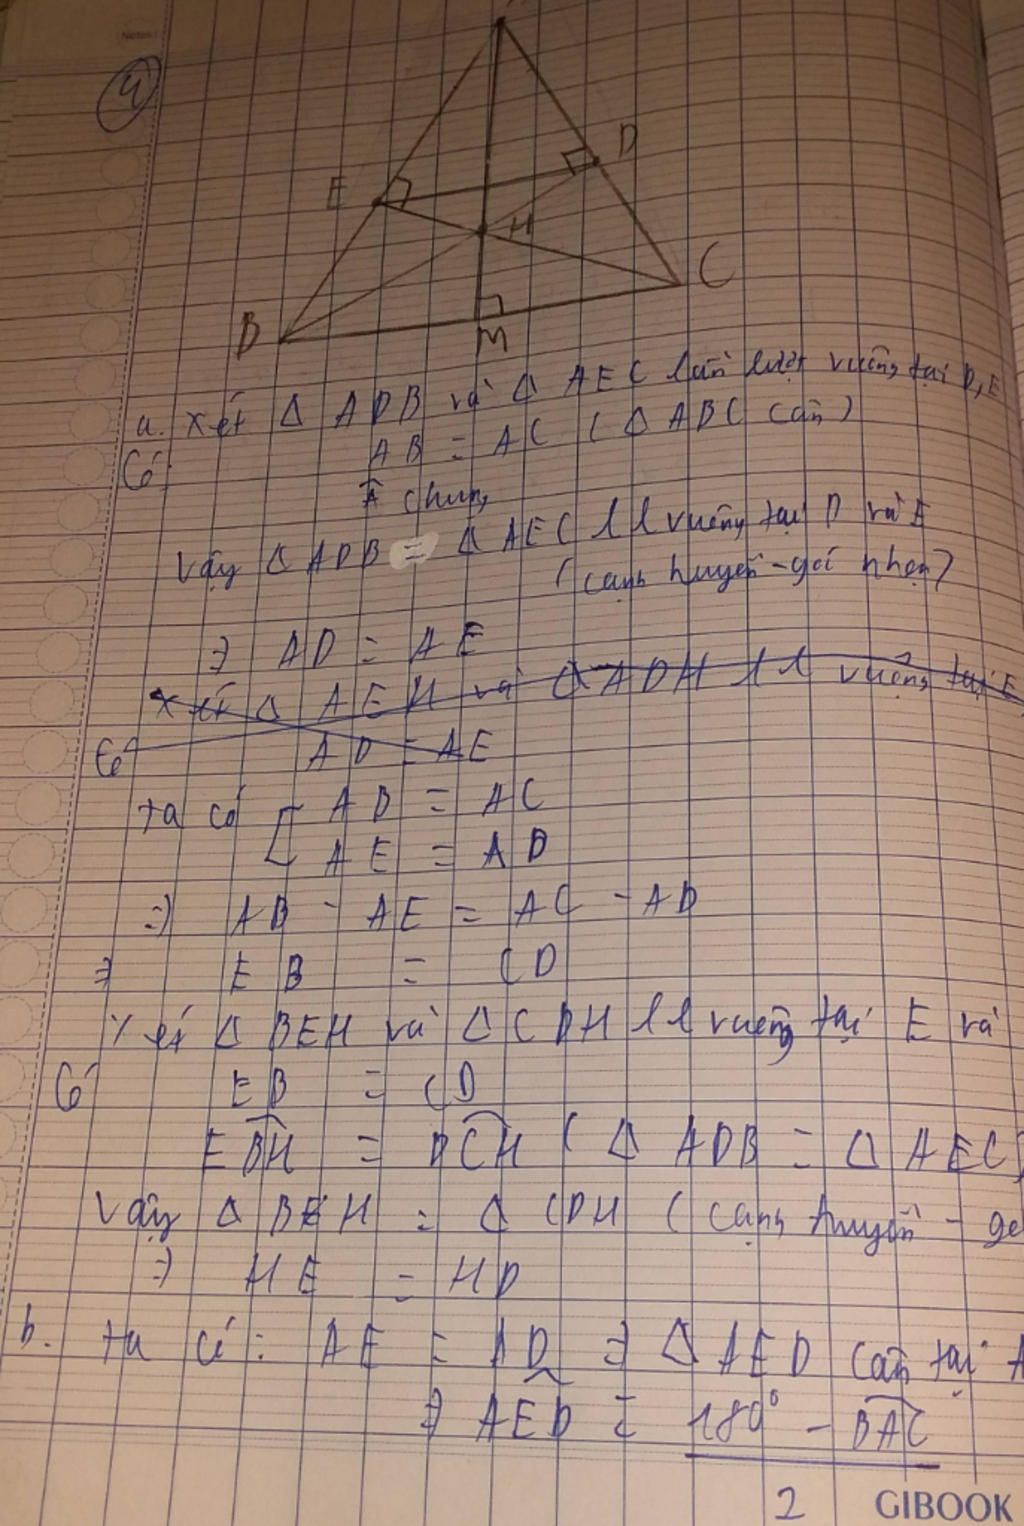 4
E
D
H
B
M
C
a. Xét Δ ADB và Δ AEC lần lượt vuông tại D, E
Có: AB = AC (Δ ABC cân)
Â chung
Vậy Δ ADB = Δ AEC l l vuông tại D và E
(cạnh huyền - góc nhọn)
⇒ AD = AE
Xét Δ AEH và Δ ADH l l vuông tại E
Có AD = AE
ta có [ AB = AC
AE = AD
⇒ AB - AE = AC - AD
⇒ EB = CD
Xét Δ BEH và Δ CDH l l vuông tại E và
Có EB = CD
EBH = DCH (Δ ADB = Δ AEC)
Vậy Δ BEH = Δ CDH (cạnh huyền - gó
⇒ HE = HD
b. ta có: AE = AD ⇒ Δ AED cân tại A
⇒ AED = 180° - BAC
2
GIBOOK